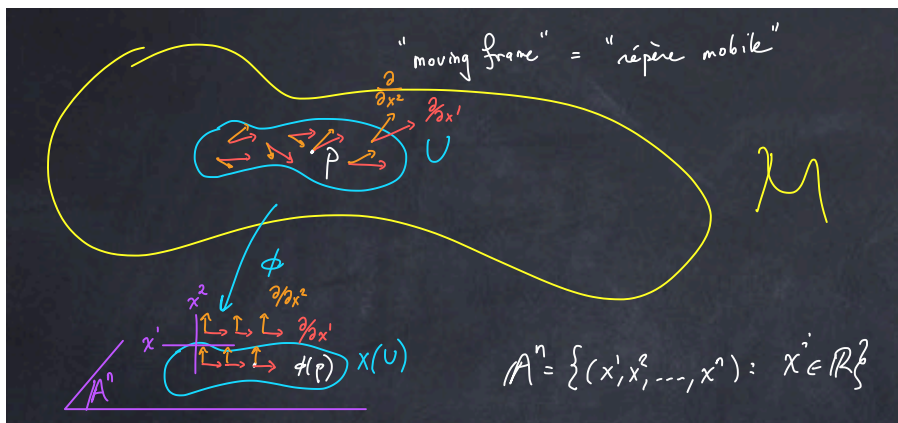 "moving frame" = "répère mobile"
∂/∂x²
∂/∂x¹
U
p
M
ϕ
x²
∂/∂x²
x¹
∂/∂x¹
ϕ(p)
X(U)
𝔸ⁿ
𝔸ⁿ = {(x¹, x², ..., xⁿ) : xⁱ ∈ ℝ}